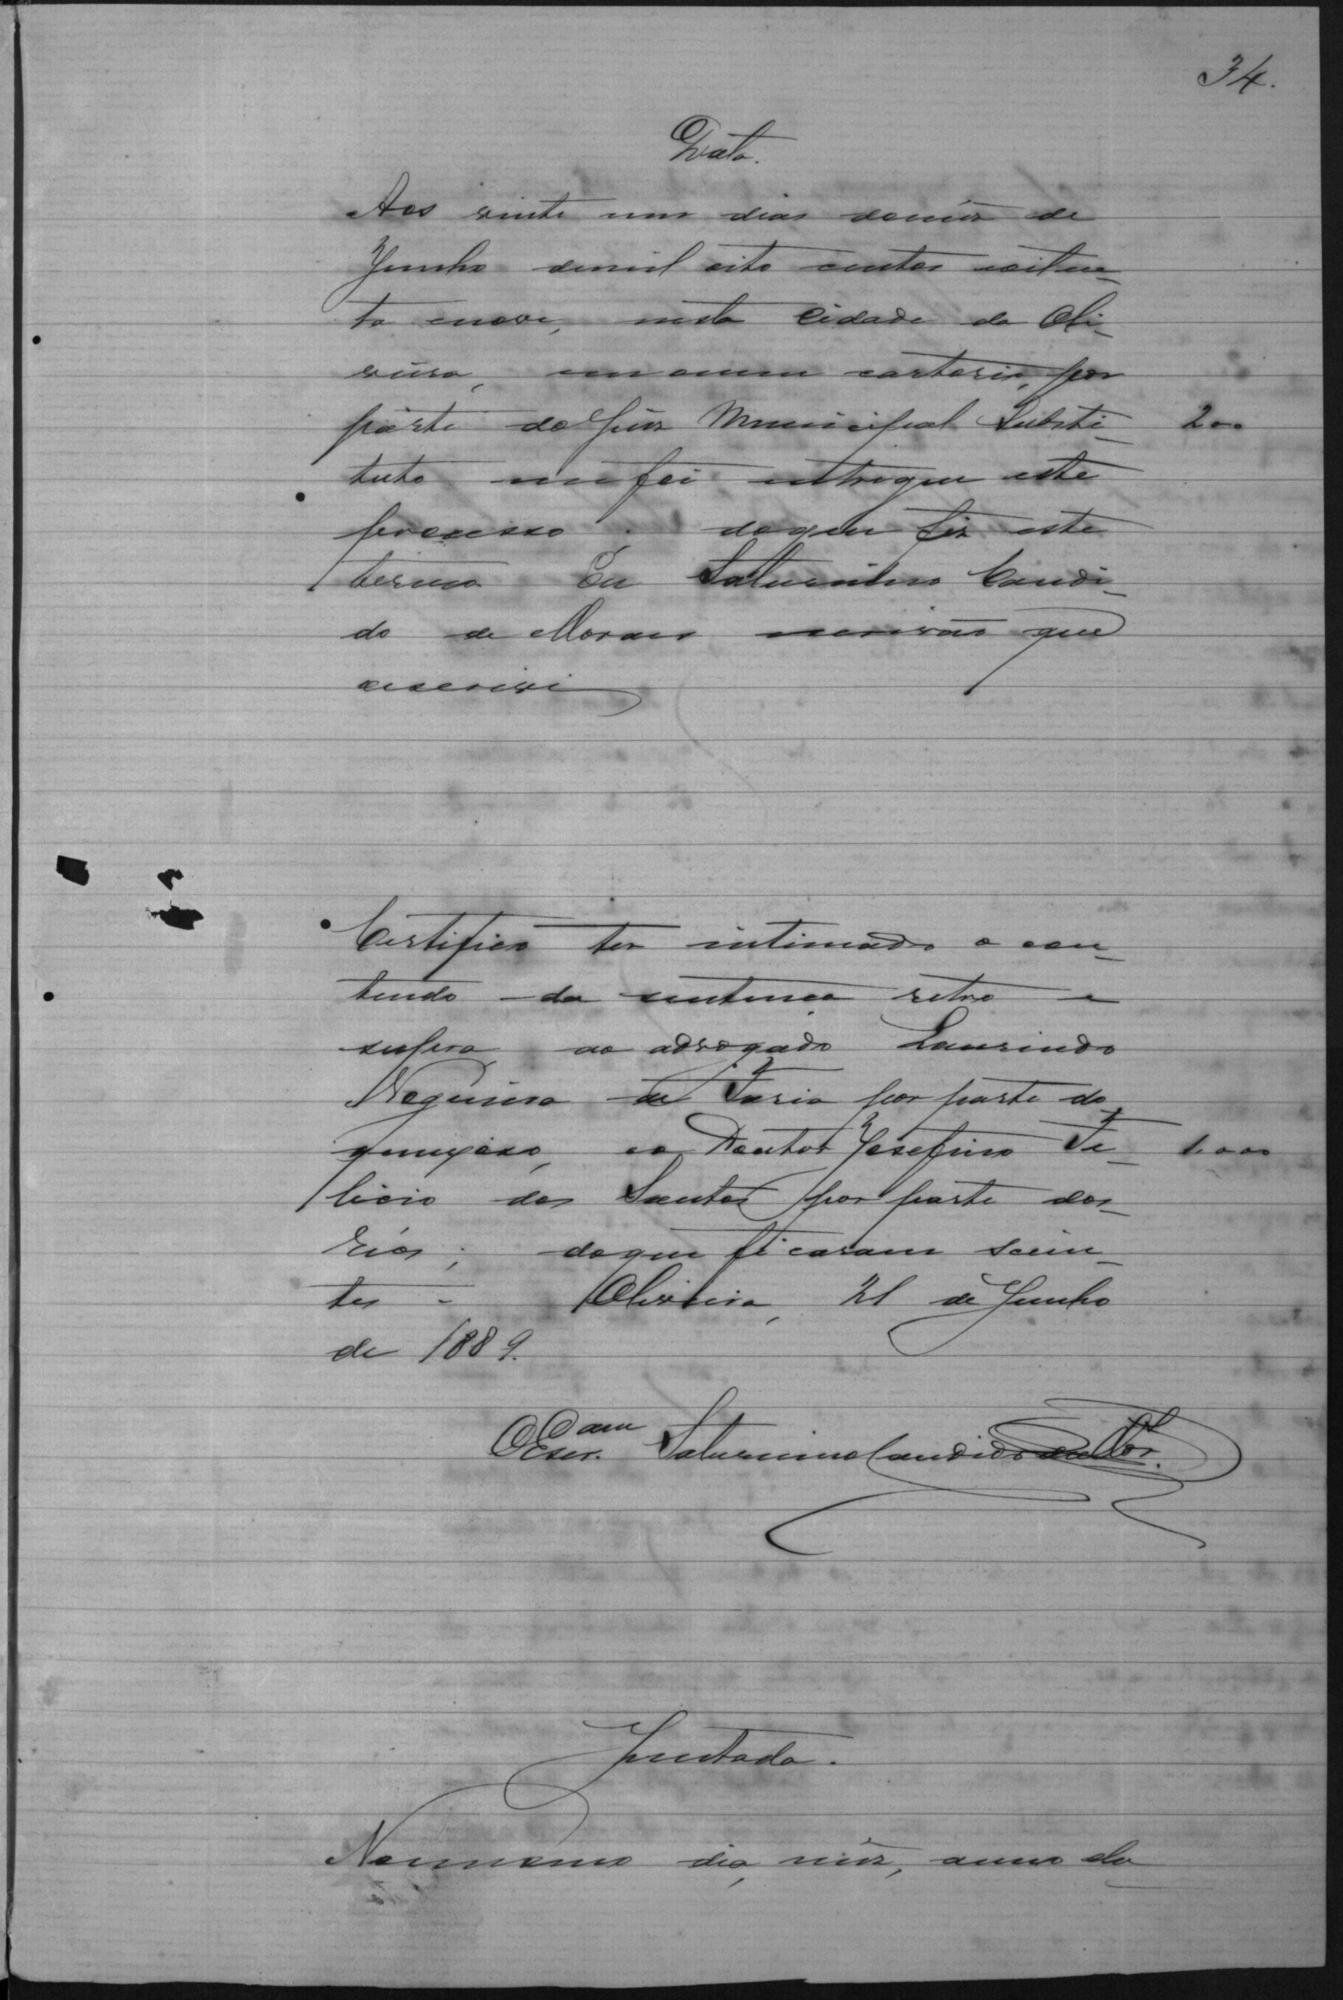 34.
Data.
Aos vinte um dias domez de
Junho demil oito centos eoiten-
ta enove, nesta Cidade da Oli-
veira, em omeu cartorio, por
parte do Juiz Municipal Substi- 200
tuto me foi entregue este
processo. doque fiz este
termo Eu Saturnino Candi-
do de Moraes escrivão que
escrevi
Certifico ter intimado o con-
teudo da sentença retro e
supra ao advogado Laurindo
Nogueira de Faria por parte do
queixoso, eo Doutor Josefino Fe- 1.000
licio dos Santos por parte dos
Réos; doque ficaram scien-
tes - Oliveira, 21 de Junho
de 1889.
O Escr. Saturnino Candido de Mor.
Juntada.
Nomesmo dia, mez, anno da